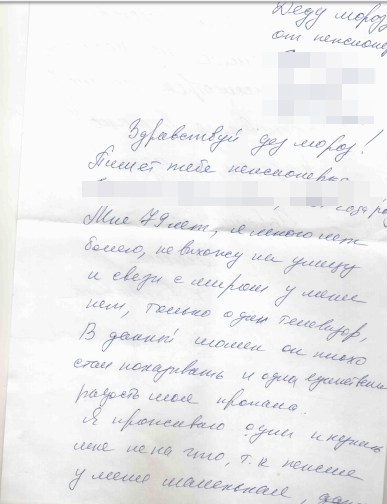 Деду мороз
от пенсионер
Здравствуй дед мороз!
Пишет тебе пенсионерка
Мне 79 лет, я много лет
болею, не выхожу на улицу
и связи с миром у меня
нет, только один телевизор,
В данный момен он плохо
стал показывать и одна единствен
радость моя пропала.
Я проживаю одна и купить
мне не на что, т.к пенсия
у меня маленькая,